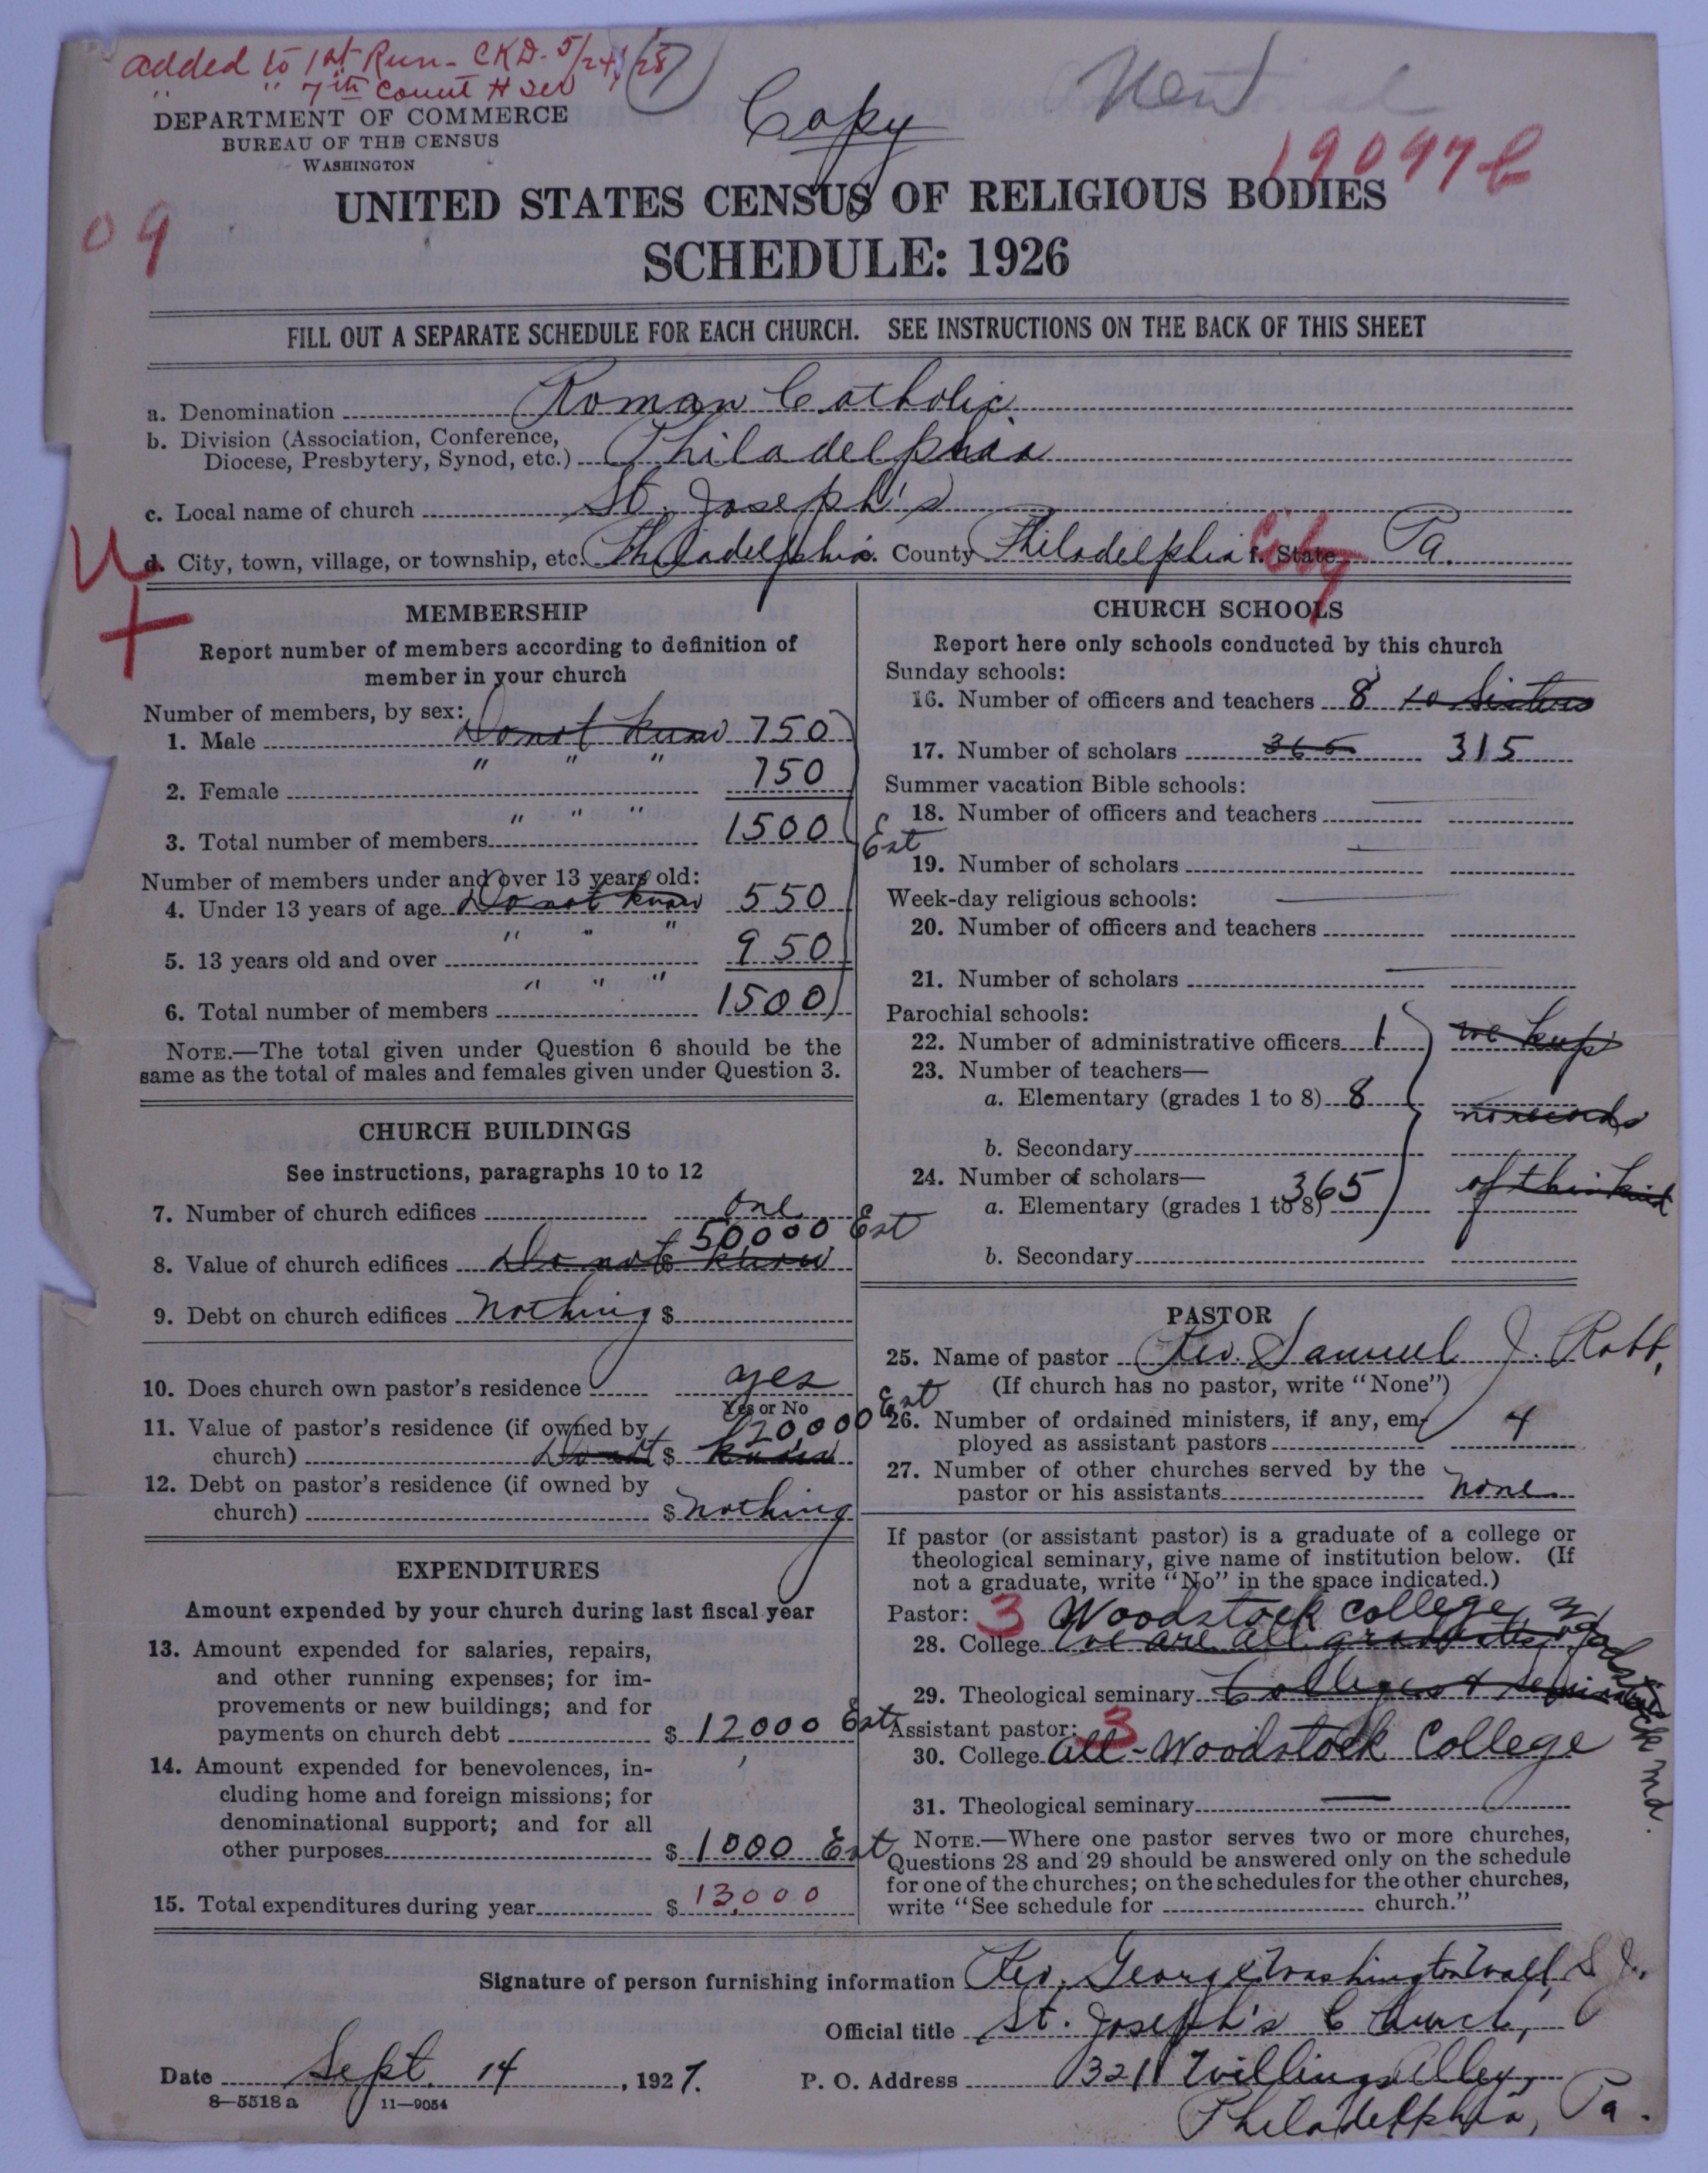 added to 1st Run - CKD - 5/24/28
" " 7th Count H
(7)
Copy
19097 b
DEPARTMENT OF COMMERCE
BUREAU OF THE CENSUS
WASHINGTON
UNITED STATES CENSUS OF RELIGIOUS BODIES
09
SCHEDULE: 1926
FILL OUT A SEPARATE SCHEDULE FOR EACH CHURCH. SEE INSTRUCTIONS ON THE BACK OF THIS SHEET
a. Denomination Roman Catholic
b. Division (Association, Conference,
Diocese, Presbytery, Synod, etc.) Philadelphia
c. Local name of church St. Joseph's
d. City, town, village, or township, etc. Philadelphia. County Philadelphia f. State Pa.
City
MEMBERSHIP
Report number of members according to definition of
member in your church
Number of members, by sex:
1. Male Do not know 750
2. Female " " " 750
3. Total number of members " " " 1500
Est
Number of members under and over 13 years old:
4. Under 13 years of age Do not know 550
5. 13 years old and over " " " 950
6. Total number of members " " " 1500
NOTE.—The total given under Question 6 should be the
same as the total of males and females given under Question 3.
CHURCH BUILDINGS
See instructions, paragraphs 10 to 12
7. Number of church edifices one
50,000 Est
8. Value of church edifices Do not $ know
9. Debt on church edifices nothing $
10. Does church own pastor's residence yes
Yes or No
11. Value of pastor's residence (if owned by 20,000 Est
church) Do not $ know
12. Debt on pastor's residence (if owned by
church) $ nothing
EXPENDITURES
Amount expended by your church during last fiscal year
13. Amount expended for salaries, repairs,
and other running expenses; for im-
provements or new buildings; and for
payments on church debt $ 12000 Est
14. Amount expended for benevolences, in-
cluding home and foreign missions; for
denominational support; and for all
other purposes $ 1000 Est
15. Total expenditures during year $ 13,000
CHURCH SCHOOLS
Report here only schools conducted by this church
Sunday schools:
16. Number of officers and teachers 8 10 Sisters
17. Number of scholars 365 315
Summer vacation Bible schools:
18. Number of officers and teachers
19. Number of scholars
Week-day religious schools:
20. Number of officers and teachers
21. Number of scholars
Parochial schools:
22. Number of administrative officers 1 we keep
23. Number of teachers—
a. Elementary (grades 1 to 8) 8 no records
b. Secondary
24. Number of scholars—
a. Elementary (grades 1 to 8) 365 of this kind
b. Secondary
PASTOR
25. Name of pastor Rev. Samuel J. Robb,
(If church has no pastor, write "None")
26. Number of ordained ministers, if any, em-
ployed as assistant pastors 4
27. Number of other churches served by the
pastor or his assistants none
If pastor (or assistant pastor) is a graduate of a college or
theological seminary, give name of institution below. (If
not a graduate, write "No" in the space indicated.)
Pastor: 3 Woodstock College, Woodstock Md.
28. College We are all graduates of
29. Theological seminary Colleges & seminaries
Assistant pastor: 3
30. College all - Woodstock College
31. Theological seminary —
NOTE.—Where one pastor serves two or more churches,
Questions 28 and 29 should be answered only on the schedule
for one of the churches; on the schedules for the other churches,
write "See schedule for church."
Signature of person furnishing information Rev. George Washington Wall, S.J.
Official title St. Joseph's Church,
Date Sept. 14, 1927. P. O. Address 321 Willings Alley,
Philadelphia, Pa.
8—5518a 11—9054